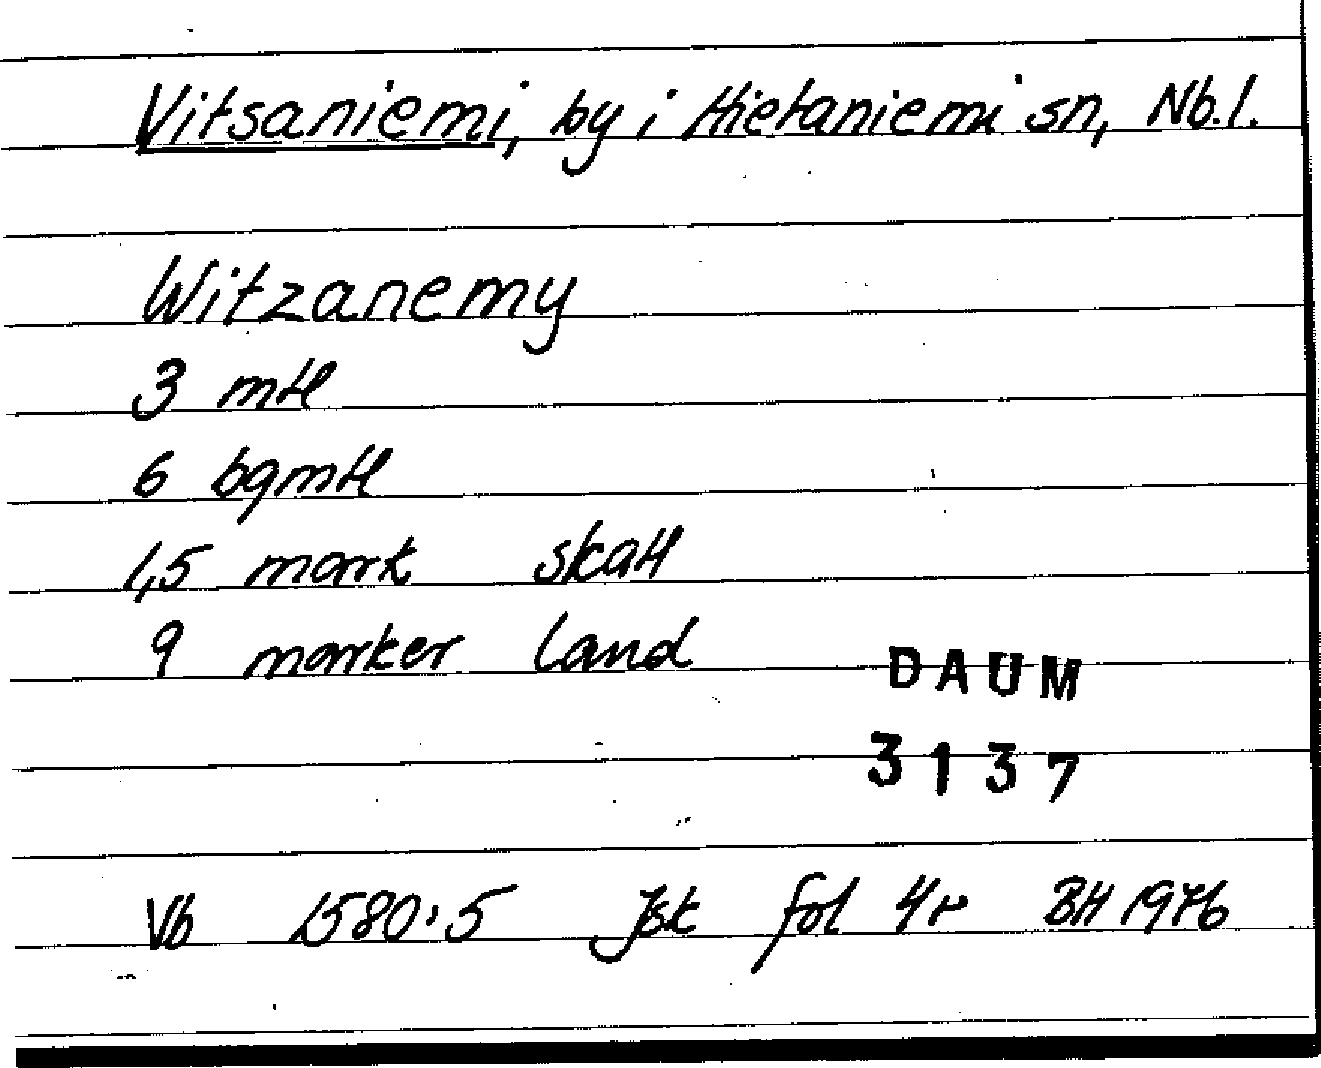 Vitsaniemi, by i Hietaniemi sn, Nb.l.
Witzanemy
3 mtl
6 bgmtl
1,5 mark skatt
9 marker land
DAUM
3137
Vb 1580:5 Jbk fol 4r BH 1976